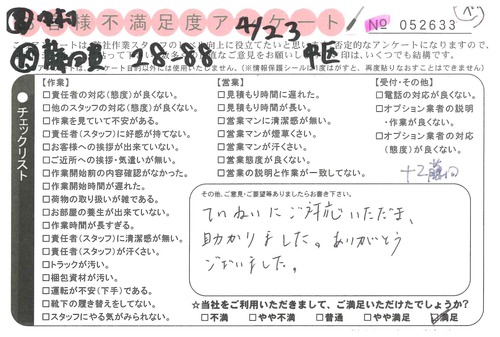 お客様不満足度アンケート
4/23
No 052633
28-88
中区
チェックリスト
【作業】
□責任者の対応(態度)が良くない。
□他のスタッフの対応(態度)が良くない。
□作業を見ていて不安がある。
□責任者(スタッフ)に好感が持てない。
□お客様への挨拶が出来ていない。
□ご近所への挨拶・気遣いが無い。
□作業開始前の内容確認がなかった。
□作業開始時間が遅れた。
□荷物の取り扱いが雑である。
□お部屋の養生が出来ていない。
□作業時間が長すぎる。
□責任者(スタッフ)に清潔感が無い。
□責任者(スタッフ)が汗くさい。
□トラックが汚い。
□梱包資材が汚い。
□運転が不安(下手)である。
□靴下の履き替えをしてない。
□スタッフにやる気がみられない。
【営業】
□見積もり時間に遅れた。
□見積もり時間が長い。
□営業マンに清潔感が無い。
□営業マンが煙草くさい。
□営業マンが汗くさい。
□営業態度が良くない。
□営業の説明と作業が一致してない。
【受付・その他】
□電話の対応が良くない。
□オプション業者の説明・作業が良くない。
□オプション業者の対応(態度)が良くない。
その他、ご意見・ご要望等ありましたらお書き下さい。
ていねいにご対応いただき、
助かりました。ありがとう
ございました。
☆当社をご利用いただきまして、ご満足いただけたでしょうか?
□不満 □やや不満 □普通 □やや満足 ☑満足